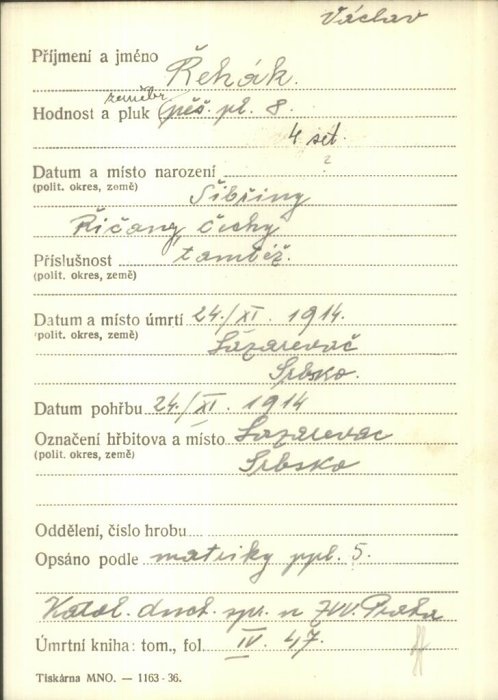 Václav
Příjmení a jméno Řehák.
zeměbr
Hodnost a pluk pěš. pl. 8.
4 set.
Datum a místo narození
(polit. okres, země)
Šibřiny
Říčany, Čechy
Příslušnost tamtéž.
(polit. okres, země)
Datum a místo úmrtí 24./XI. 1914.
(polit. okres, země)
Lazarevač
Srbsko.
Datum pohřbu 24./XI. 1914
Označení hřbitova a místo Lazarevac
(polit. okres, země)
Srbsko
Oddělení, číslo hrobu
Opsáno podle matriky ppl. 5.
Katol. duch. spr. u ZVV. Praha
Úmrtní kniha: tom., fol. IV. 47.
Tiskárna MNO. — 1163-36.